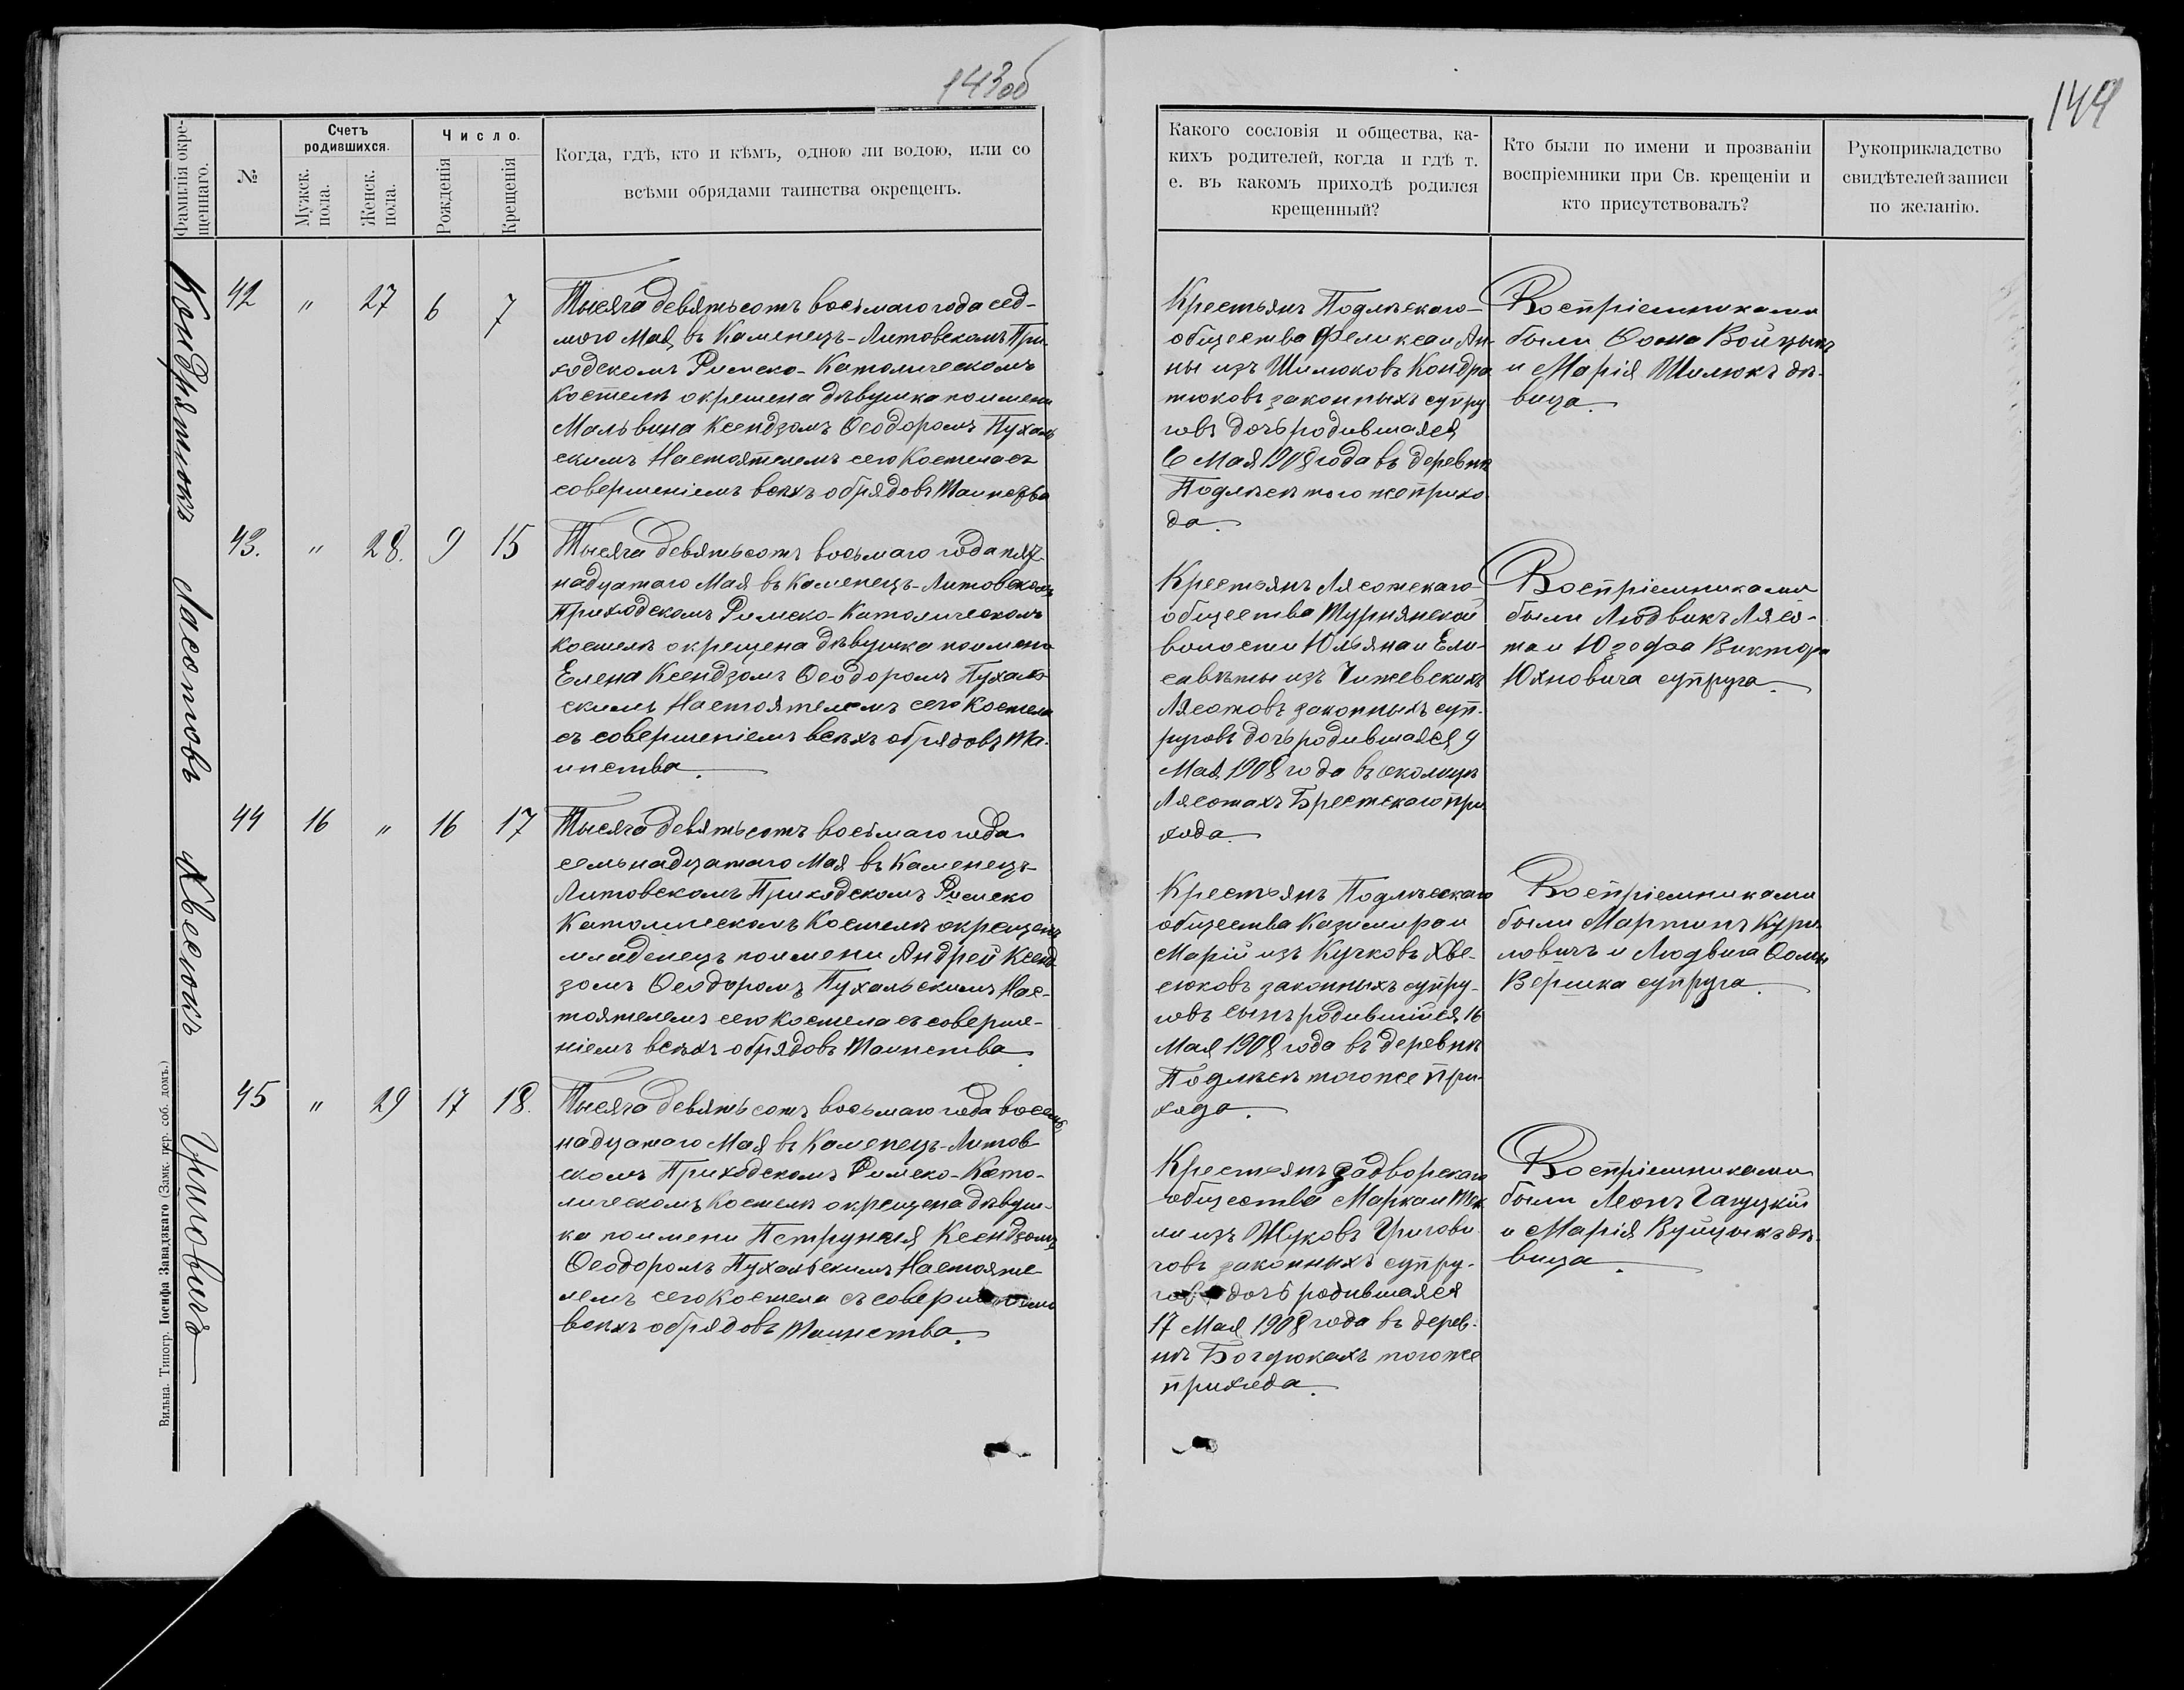 143об
144
Фамилія окре-
щеннаго.
№
Счетъ
родившихся.
Мужск.
пола.
Женск.
пола.
Число.
Рожденія
Крещенія
Когда, гдѣ, кто и кѣмъ, одною ли водою, или со
всѣми обрядами таинства окрещенъ.
Какого сословія и общества, ка-
кихъ родителей, когда и гдѣ т.
е. въ какомъ приходѣ родился
крещенный?
Кто были по имени и прозваніи
воспріемники при Св. крещеніи и
кто присутствовалъ?
Рукоприкладство
свидѣтелей записи
по желанію.
Кондратюкъ
42 " 27 6 7
Тысяча девятьсотъ восьмаго года сед-
мого Мая, въ Каменецъ-Литовскомъ При-
ходскомъ Римско-Католическомъ
Костелѣ окрещена дѣвушка поимени
Мальвина Ксендзомъ Ѳеодоромъ Пухаль
скимъ Настоятелемъ сего Костела съ
совершеніемъ всѣхъ обрядовъ Таинства
Крестьянъ Подлѣскаго
общества Феликса и Ан-
ны изъ Шилюковъ Кондра
тюковъ законныхъ супру
говъ дочь родившаяся
6 Мая 1908 года въ деревнѣ
Подлѣсѣ того же прихо
да.
Воспріемниками
были Ѳома Войцикъ
и Марія Шилюкъ дѣ-
вица.
Лясотовъ
43. " 28. 9 15
Тысяча девятьсотъ восьмаго года пят-
надцатаго Мая въ Каменецъ-Литовскомъ
Приходскомъ Римско-Католическомъ
костелѣ окрещена дѣвушка поимени
Елена Ксендзомъ Ѳеодоромъ Пухаль
скимъ Настоятелемъ сего Костела
съ совершеніемъ всѣхъ обрядовъ Та-
инства.
Крестьянъ Лясотскаго
общества Турнянской
волости Юльяна и Ели-
саветы изъ Чижевскихъ
Лясотовъ законныхъ суп-
руговъ дочь родившаяся 9
Мая 1908 года въ околицѣ
Лясотахъ Брестскаго при
хода.
Воспріемниками
были Людвикъ Лясо-
та и Юзефа Виктора
Юхновича супруга.
Хвесюкъ
44 16 " 16 17
Тысяча девятьсотъ восьмаго года
семьнадцатаго Мая въ Каменецъ-
Литовскомъ Приходскомъ Римско
Католическомъ Костелѣ окрещенъ
младенецъ поимени Андрей Ксенд
зомъ Ѳеодоромъ Пухальскимъ Нас-
тоятелемъ сего Костела съ соверше-
ніемъ всѣхъ обрядовъ Таинства
Крестьянъ Подлѣсскаго
общества Казимира и
Маріи изъ Кучковъ Хве-
сюковъ законныхъ супру-
говъ сынъ родившійся 16
Мая 1908 года въ деревнѣ
Подлѣсѣ того же при-
хода.
Воспріемниками
были Мартинъ Кури-
ловичъ и Людвига Ѳомы
Вершка супруга.
Григовичъ
45 " 29 17 18.
Тысяча девятьсотъ восьмаго года восемь
надцатаго Мая въ Каменецъ-Литов
скомъ Приходскомъ Римско-Като-
лическомъ Костелѣ окрещена дѣвуш-
ка поимени Петрунеля Ксендзомъ
Ѳеодоромъ Пухальскимъ Настояте
лемъ сего Костела съ совершеніемъ
всѣхъ обрядовъ Таинства.
Крестьянъ Задворскаго
общества Марка и Тек
ли изъ Жуковъ Григови
човъ законныхъ супру-
говъ дочь родившаяся
17 Мая 1908 года въ дерев-
нѣ Богдюкахъ того же
прихода.
Воспріемниками
были Леонъ Гацуцкій
и Марія Вуйцикъ дѣ-
вица.
Вильна. Типогр. Іосифа Завадзкаго (Замк. пер. соб. домъ.)